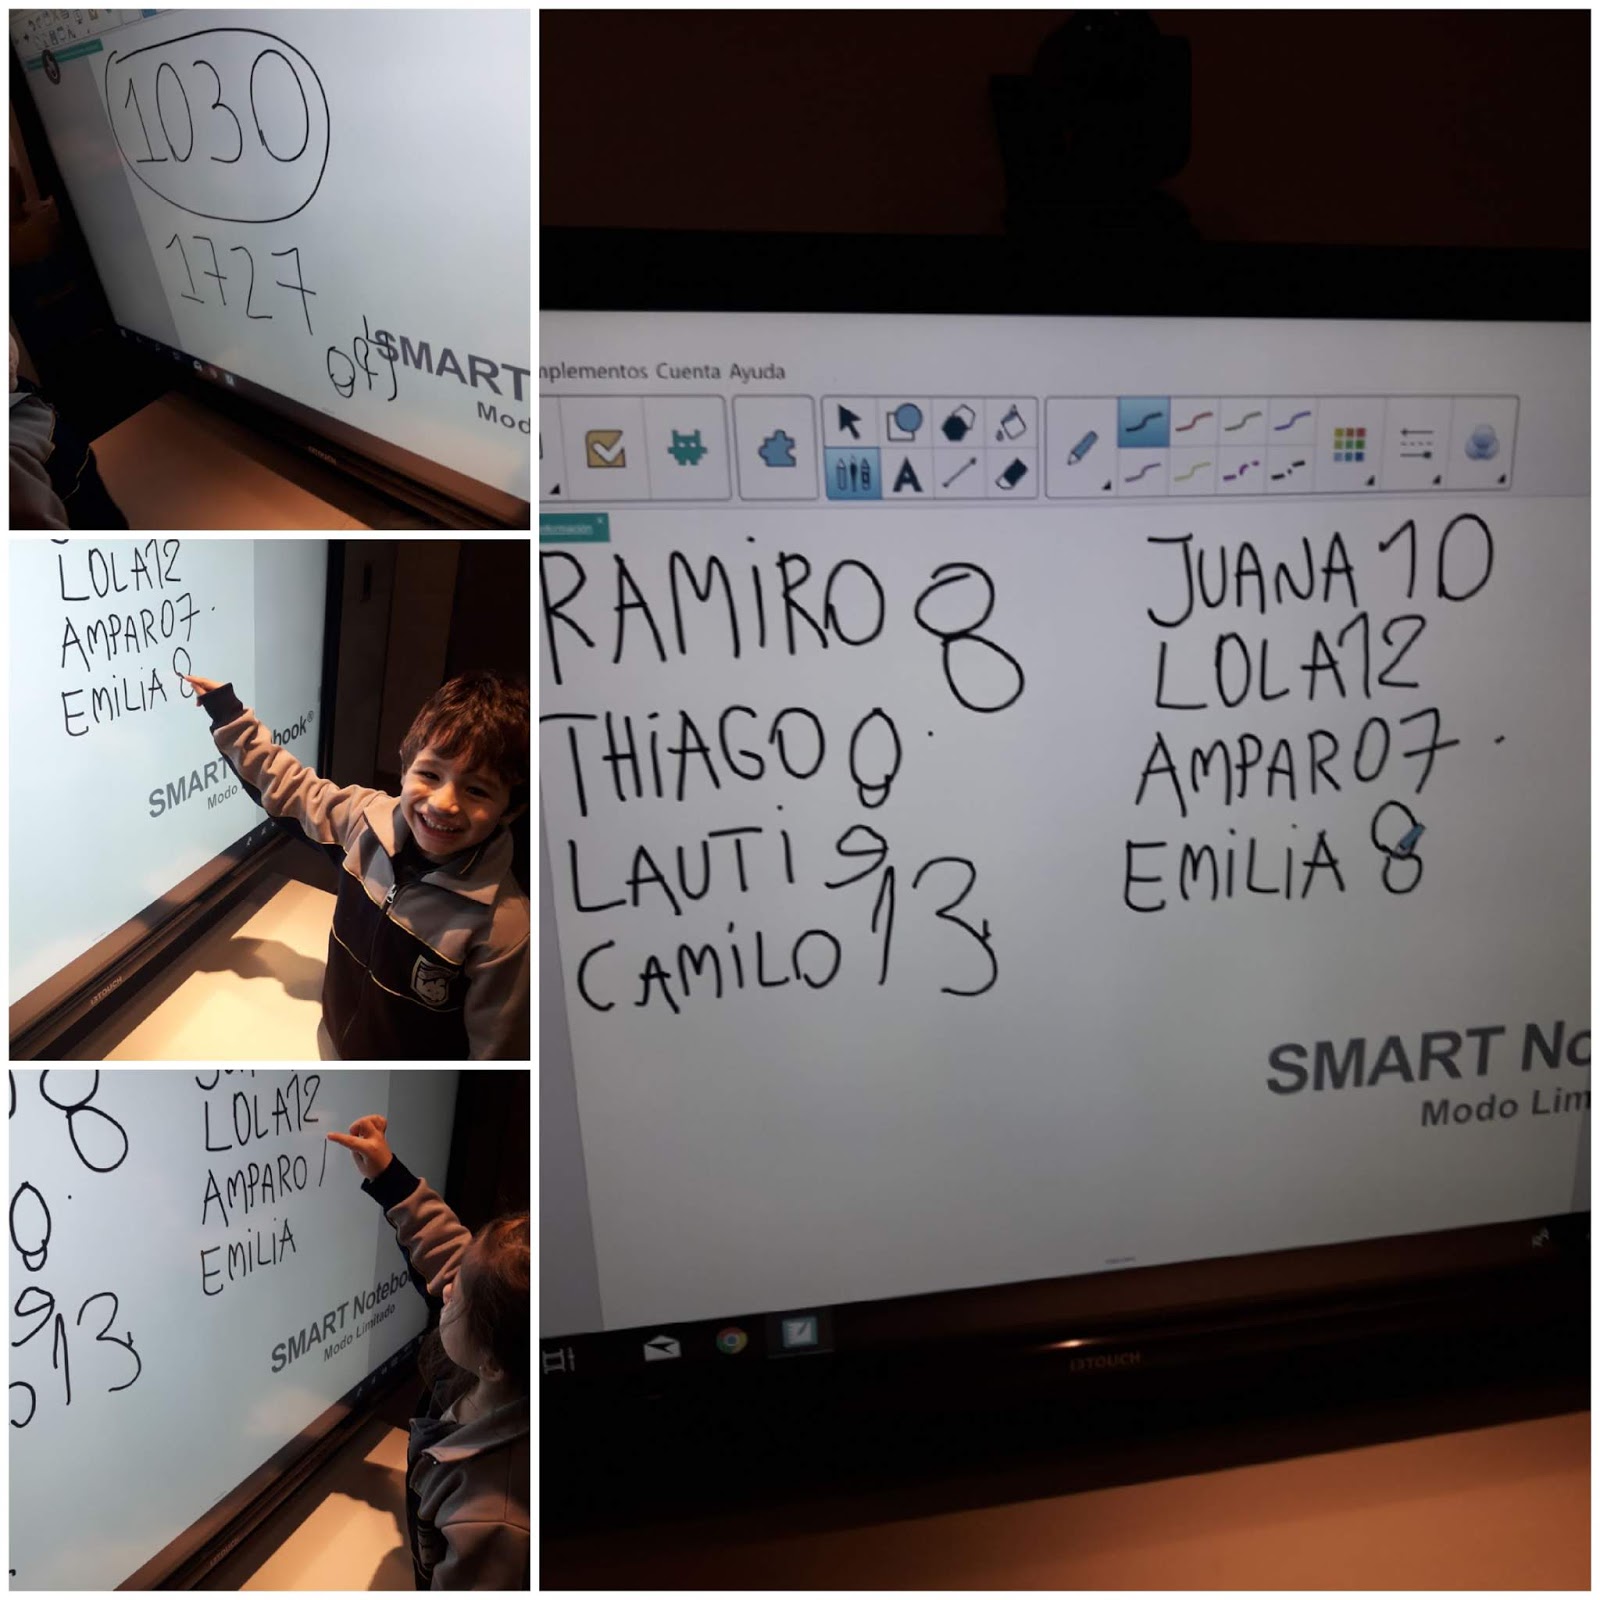 1030
1727
SMART
Mod
LOLA 12
AMPARO 7.
EMILIA 8
SMART
book®
Modo
i3TOUCH
8
LOLA 12
AMPARO /
EMILIA
9
13
SMART Notebo
Modo Limitado
i3TOUCH
mplementos Cuenta Ayuda
RAMIRO 8
THIAGO 8
LAUTI 9
CAMILO 13
JUANA 10
LOLA 12
AMPARO 7.
EMILIA 8
SMART No
Modo Lim
i3TOUCH